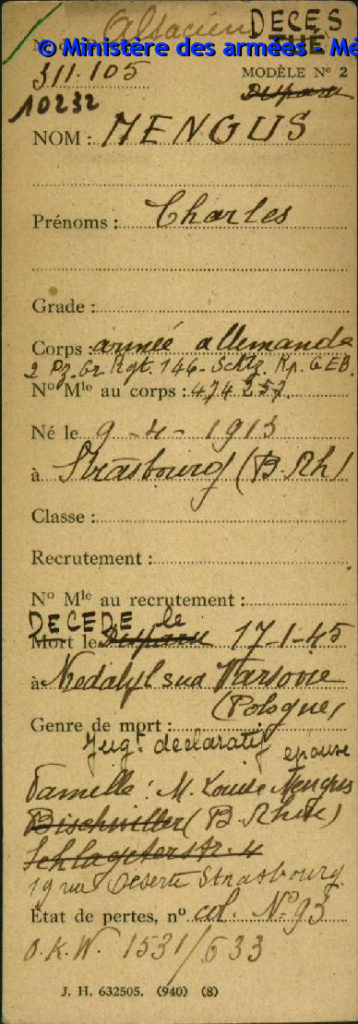 Alsacien DECES
N THE
© Ministère des armées - Mé
311.105
MODÈLE N° 2
10232 Disparu
NOM : MENGUS
Prénoms : Charles
Grade :
Corps : armée allemande
2 Pz. Gr. Rgt. 146 - Schtz. Kp. GEB.
N° Mle au corps : 474 257.
Né le 9-4-1913
à Strasbourg (B. Rh)
Classe :
Recrutement :
N° Mle au recrutement :
DECEDE le
Mort le Disparu 17-1-45
à sud Varsovie
(Pologne)
Genre de mort :
Jugt déclaratif épouse
Famille : M. Louise Mengus
Bischwiller (B. Rhin)
Schlageterstr. 4
19 rue Deserte Strasbourg
État de pertes, n° al. N° 93
O.K.W. 1531/633
J. H. 632505. (940) (8)